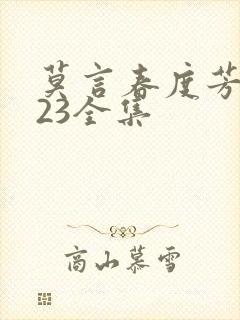 莫言春度芳
23全集
高山慕雪